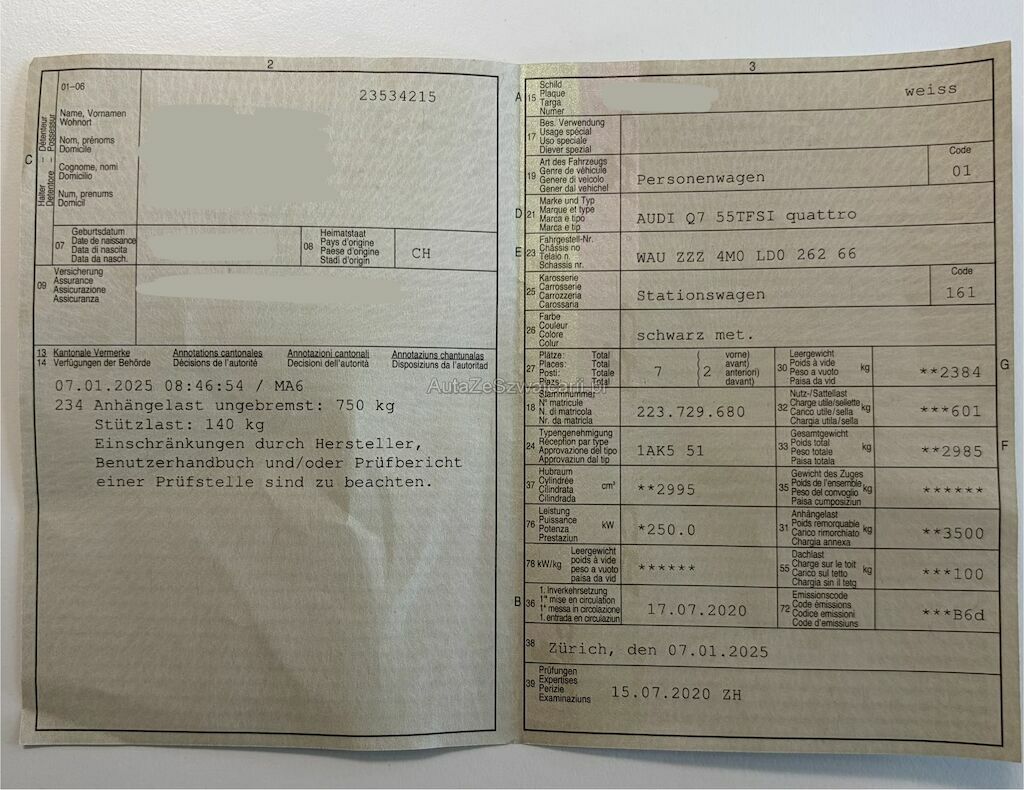 2
01-06
23534215
C
Halter – Détenteur
Detentore – Possessur
Name, Vornamen
Wohnort
Nom, prénoms
Domicile
Cognome, nomi
Domicilio
Num, prenums
Domicil
07
Geburtsdatum
Date de naissance
Data di nascita
Data da nasch.
08
Heimatstaat
Pays d'origine
Paese d'origine
Stadi d'origin
CH
09
Versicherung
Assurance
Assicurazione
Assicuranza
13 Kantonale Vermerke Annotations cantonales Annotazioni cantonali Annotaziuns chantunalas
14 Verfügungen der Behörde Décisions de l'autorité Decisioni dell'autorità Disposiziuns da l'autoritad
07.01.2025 08:46:54 / MA6
234 Anhängelast ungebremst: 750 kg
Stützlast: 140 kg
Einschränkungen durch Hersteller,
Benutzerhandbuch und/oder Prüfbericht
einer Prüfstelle sind zu beachten.
AutaZeSzwajcarii.pl
3
A 15
Schild
Plaque
Targa
Numer
weiss
17
Bes. Verwendung
Usage spécial
Uso speciale
Diever spezial
19
Art des Fahrzeugs
Genre de véhicule
Genere di veicolo
Gener dal vehichel
Personenwagen
Code
01
D 21
Marke und Typ
Marque et type
Marca e tipo
Marca e tip
AUDI Q7 55TFSI quattro
E 23
Fahrgestell-Nr.
Châssis no
Telaio n.
Schassis nr.
WAU ZZZ 4M0 LD0 262 66
25
Karosserie
Carrosserie
Carrozzeria
Carossaria
Stationswagen
Code
161
26
Farbe
Couleur
Colore
Colur
schwarz met.
27
Plätze: Total
Places: Total
Posti: Totale
Plazs: Total
7
( 2
vorne)
avant)
anteriori)
davant)
30
Leergewicht
Poids à vide
Peso a vuoto
Paisa da vid
kg
**2384
G
18
Stammnummer
N° matricule
N. di matricola
Nr. da matricla
223.729.680
32
Nutz-/Sattellast
Charge utile/sellette
Carico utile/sella
Chargia utila/sella
kg
***601
24
Typengenehmigung
Réception par type
Approvazione del tipo
Approvaziun dal tip
1AK5 51
33
Gesamtgewicht
Poids total
Peso totale
Paisa totala
kg
**2985
F
37
Hubraum
Cylindrée
Cilindrata
Cilindrada
cm³
**2995
35
Gewicht des Zuges
Poids de l'ensemble
Peso del convoglio
Paisa cumposiziun
kg
******
76
Leistung
Puissance
Potenza
Prestaziun
kW
*250.0
31
Anhängelast
Poids remorquable
Carico rimorchiato
Chargia annexa
kg
**3500
78 kW/kg
Leergewicht
poids à vide
peso a vuoto
paisa da vid
******
55
Dachlast
Charge sur le toit
Carico sul tetto
Chargia sin il tetg
kg
***100
B 36
1. Inverkehrsetzung
1re mise en circulation
1a messa in circolazione
1. entrada en circulaziun
17.07.2020
72
Emissionscode
Code émissions
Codice emissioni
Code d'emissiuns
***B6d
38
Zürich, den 07.01.2025
39
Prüfungen
Expertises
Perizie
Examinaziuns
15.07.2020 ZH